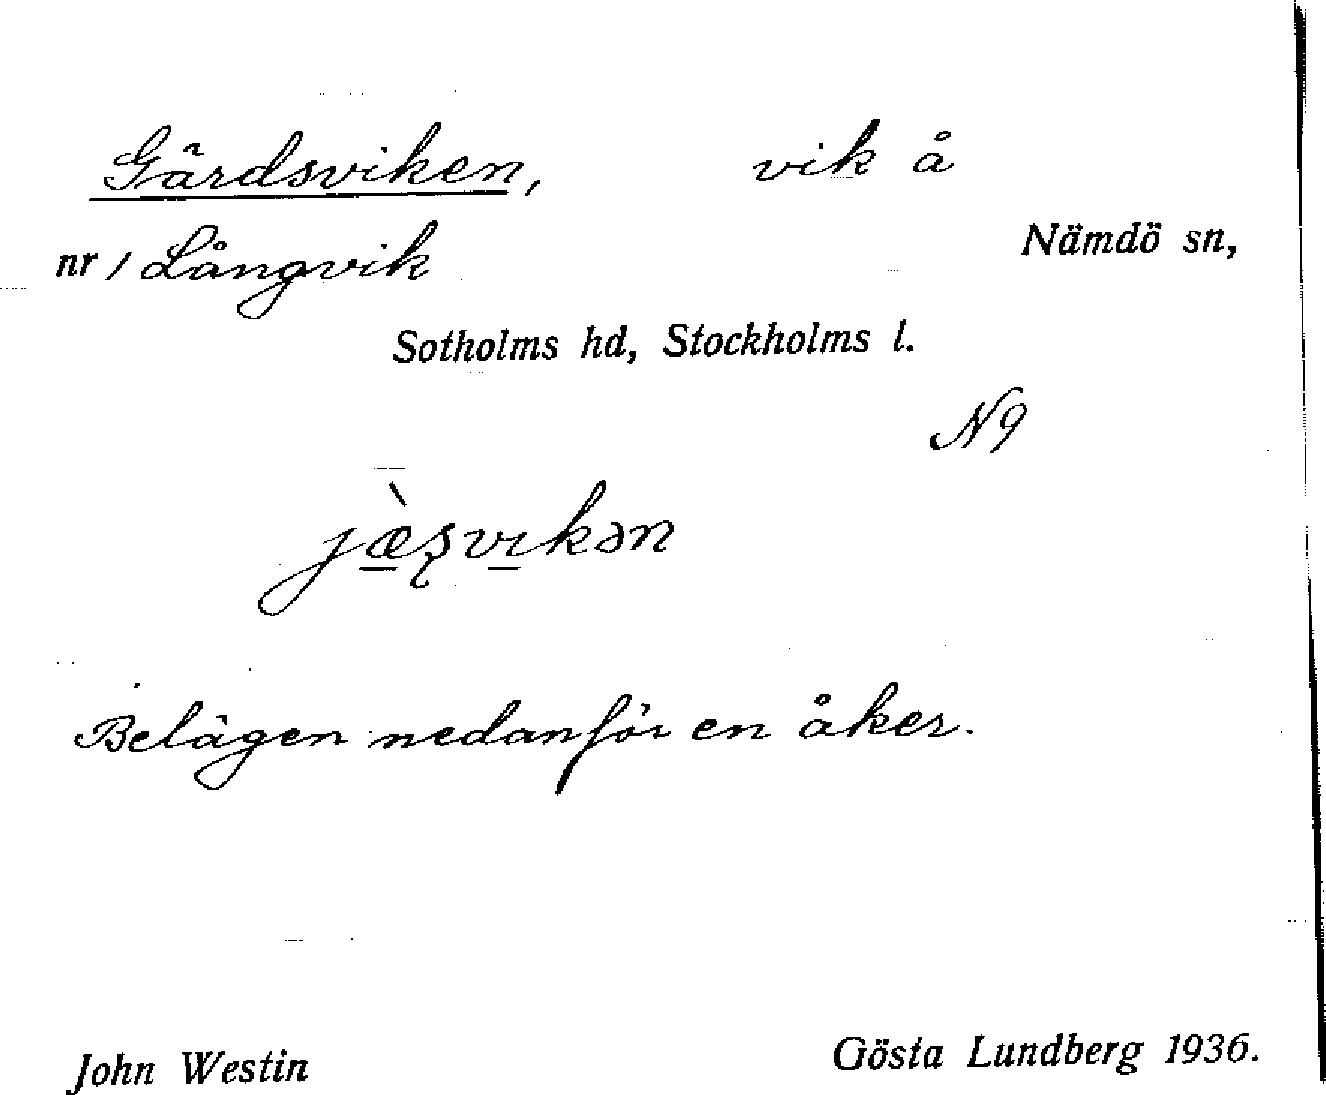 Gärdsviken, vik å
nr 1 Långvik Nämdö sn,
Sotholms hd, Stockholms l.
N9
jæ̀ʂvıkən
Belägen nedanför en åker.
John Westin Gösta Lundberg 1936.